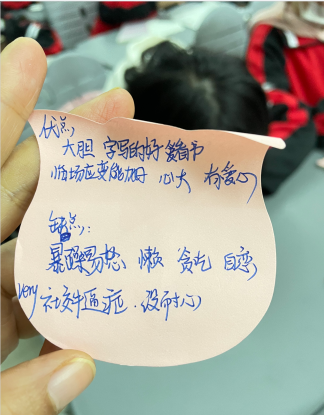 优点:
大胆 字写的好 爱看书
临场应变能力好 心大 有爱心
缺点:
暴躁易怒 懒 贪吃 自恋
very 社交牛逼症. 没耐心